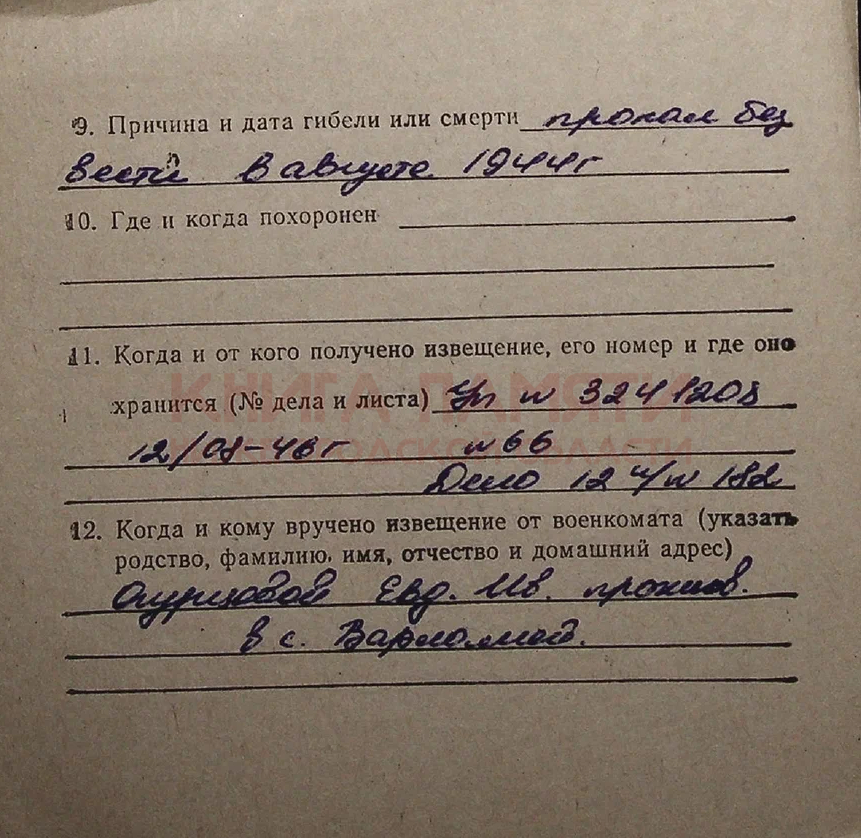 9. Причина и дата гибели или смерти пропал без
вести в августе 1944г
10. Где и когда похоронен
11. Когда и от кого получено извещение, его номер и где оно
КНИГА ПАМЯТИ
хранится (№ дела и листа) Уп № 3241208
12/08-46г №66
Дело 12 № 182
12. Когда и кому вручено извещение от военкомата (указать
родство, фамилию, имя, отчество и домашний адрес)
Евд. Ив. прожив.
в с.